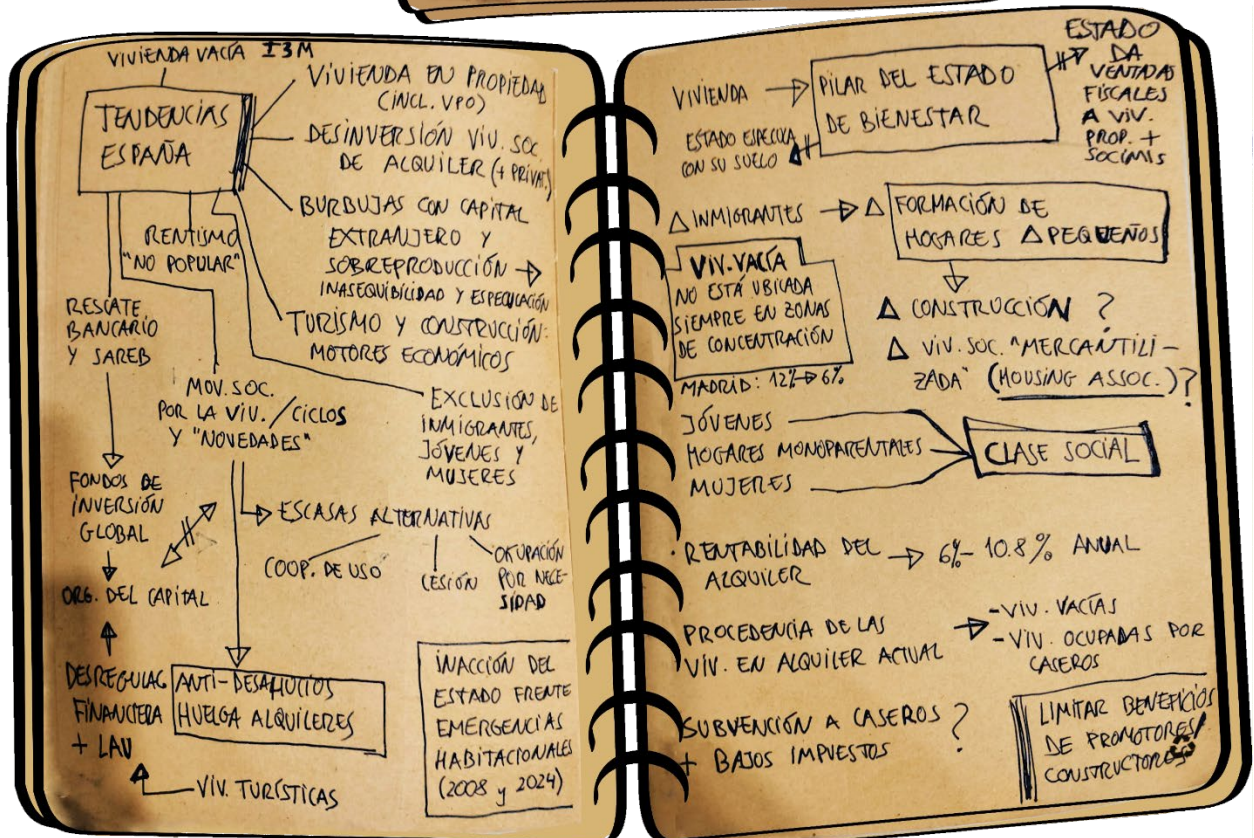 VIVIENDA VACÍA I3M
TENDENCIAS
ESPAÑA
VIVIENDA EN PROPIEDAD
(INCL. VPO)
DESINVERSIÓN VIV. SOC.
DE ALQUILER (+ PRIVAT.)
BURBUJAS CON CAPITAL
EXTRANJERO Y
SOBREPRODUCCIÓN →
INASEQUIBILIDAD Y ESPECULACIÓN
TURISMO Y CONSTRUCCIÓN:
MOTORES ECONÓMICOS
EXCLUSIÓN DE
INMIGRANTES,
JÓVENES Y
MUJERES
RENTISMO
"NO POPULAR"
RESCATE
BANCARIO
Y SAREB
MOV. SOC.
POR LA VIV. / CICLOS
Y "NOVEDADES"
FONDOS DE
INVERSIÓN
GLOBAL
ORG. DEL CAPITAL
ESCASAS ALTERNATIVAS
COOP. DE USO
CESIÓN
OKUPACIÓN
POR NECE-
SIDAD
DESREGULAC
FINANCIERA
+ LAU
ANTI-DESAHUCIOS
HUELGA ALQUILERES
VIV. TURÍSTICAS
INACCIÓN DEL
ESTADO FRENTE
EMERGENCIAS
HABITACIONALES
(2008 y 2024)
VIVIENDA →
PILAR DEL ESTADO
DE BIENESTAR
ESTADO
DA
VENTAJAS
FISCALES
A VIV.
PROP. +
SOCIMIS
ESTADO ESPECULA
CON SU SUELO
△ INMIGRANTES → △
FORMACIÓN DE
HOGARES △ PEQUEÑOS
VIV. VACÍA
NO ESTÁ UBICADA
SIEMPRE EN ZONAS
DE CONCENTRACIÓN
MADRID: 12% → 6%
△ CONSTRUCCIÓN ?
△ VIV. SOC. "MERCANTILI-
ZADA" (HOUSING ASSOC.)?
JÓVENES
HOGARES MONOPARENTALES
MUJERES
CLASE SOCIAL
· RENTABILIDAD DEL → 6% - 10.8% ANUAL
ALQUILER
PROCEDENCIA DE LAS
VIV. EN ALQUILER ACTUAL
→ - VIV. VACÍAS
- VIV. OCUPADAS POR
CASEROS
SUBVENCIÓN A CASEROS ?
+ BAJOS IMPUESTOS
LIMITAR BENEFICIOS
DE PROMOTORES/
CONSTRUCTORES